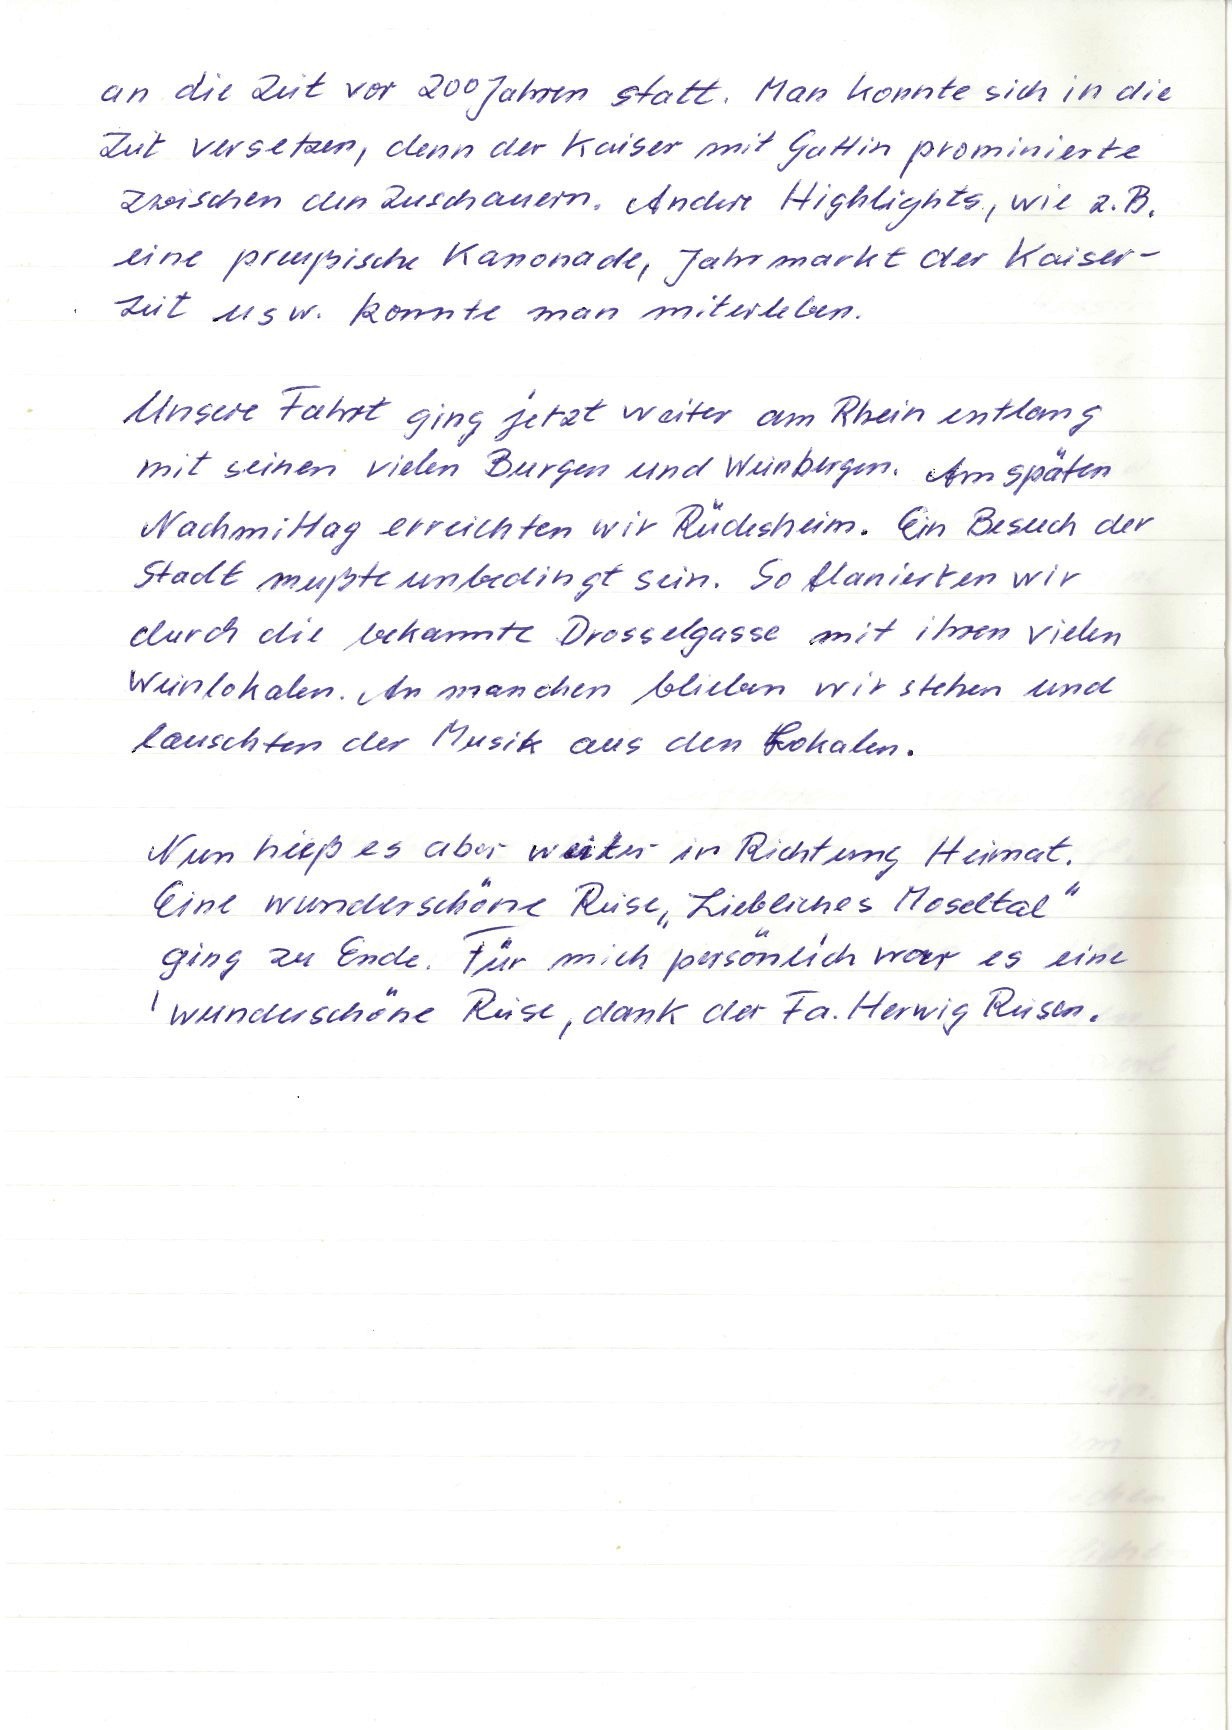 an die Zeit vor 200 Jahren statt. Man konnte sich in die
Zeit versetzen, denn der Kaiser mit Gattin prominierte
zwischen den Zuschauern. Andere Highlights, wie z.B.
eine preußische Kanonade, Jahrmarkt der Kaiser-
zeit usw. konnte man miterleben.
Unsere Fahrt ging jetzt weiter am Rhein entlang
mit seinen vielen Burgen und Weinbergen. Am späten
Nachmittag erreichten wir Rüdesheim. Ein Besuch der
Stadt mußte unbedingt sein. So flanierten wir
durch die bekannte Drosselgasse mit ihren vielen
Weinlokalen. An manchen blieben wir stehen und
lauschten der Musik aus den Lokalen.
Nun hieß es aber weiter in Richtung Heimat.
Eine wunderschöne Reise „Liebliches Moseltal"
ging zu Ende. Für mich persönlich war es eine
wunderschöne Reise, dank der Fa. Herwig Reisen.